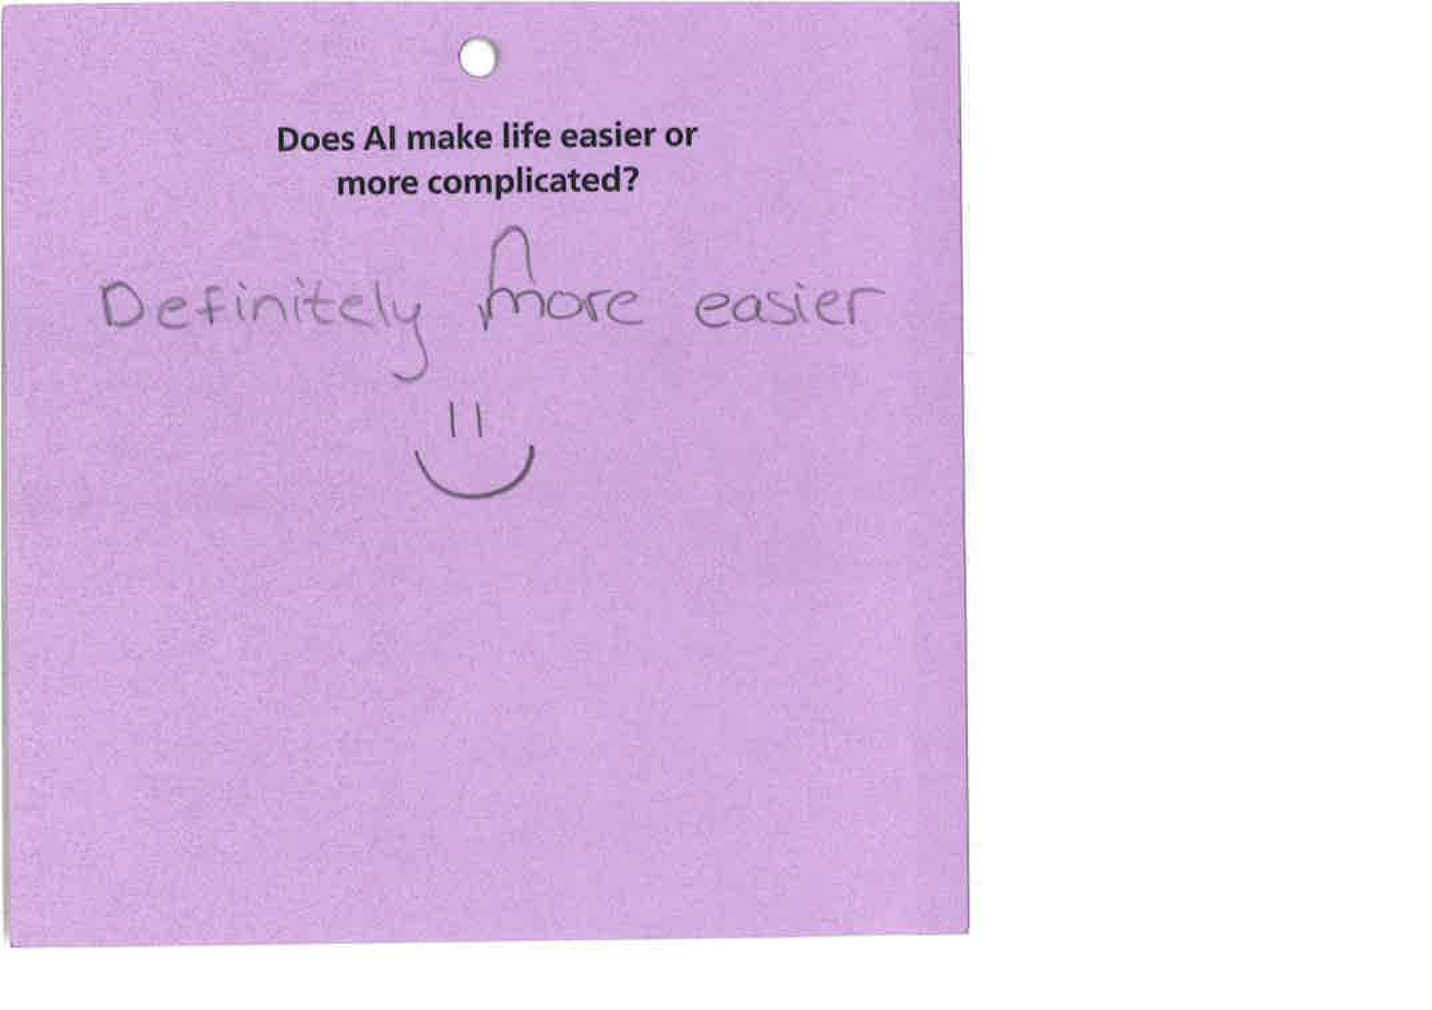 Does AI make life easier or
more complicated?
Definitely more easier